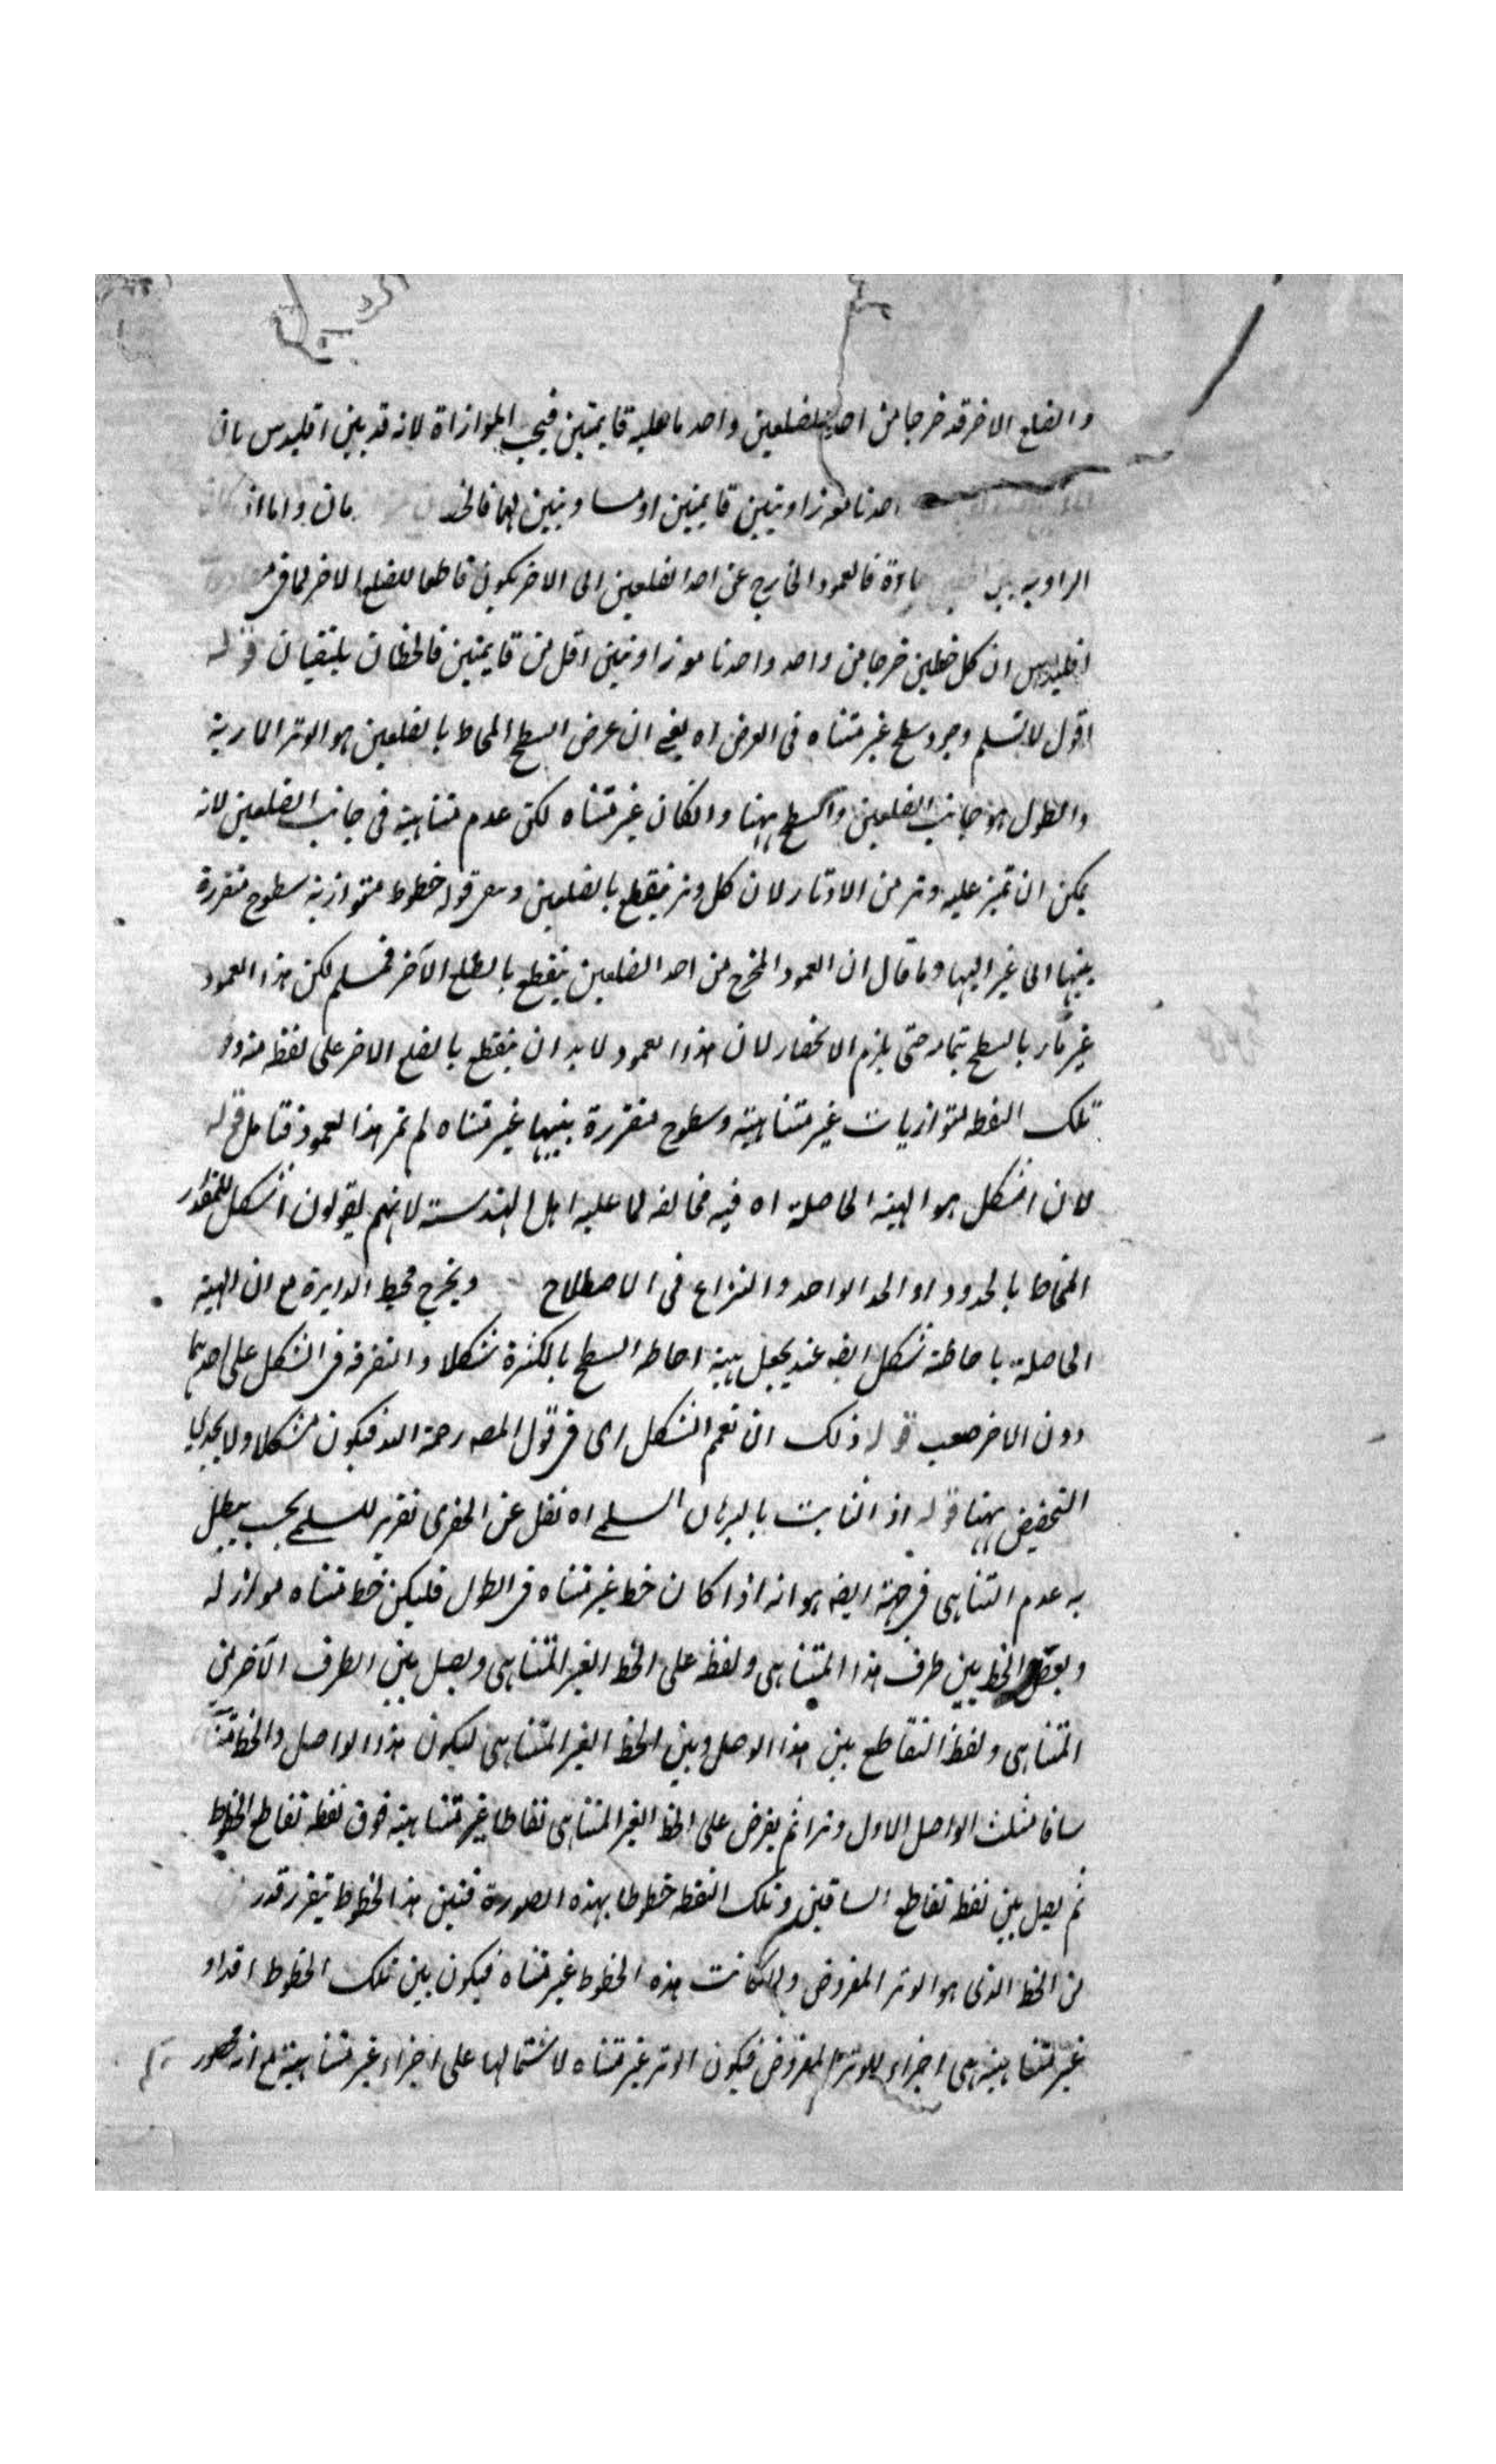 والضلع الاخر قد خرجا من احد الضلعين واحد ما هليه قايمتين فيجب الموازاة لانه قد بين اقليدس بان
احدثا معه زاويتين قايمتين او مساويتين لهما فالخط مان واما اذا كان
الزاوية حادة فالعمود الخارج عن احد الضلعين الى الاخر يكون قاطعا للضلع الاخر لما فى
اقليدس ان كل خطين خرجا من واحد واحدثا معه زاويتين اقل من قايمتين فالخطان يلتقيان قوله
اقول لا نسلم وجود سطح غير متناه فى العرض اه يعنى ان عرض السطح المحاط بالضلعين هو الوتر الاربة
والطول هو جانب الضلعين والسطح ههنا وانكان غير متناه لكن عدم متناهيته فى جانب الضلعين لانه
يمكن ان تميز عليه وتر من الاوتار لان كل وتر ينقطع بالضلعين وبقى قوله خطوط متوازية سطوح متقررة
بينها الى غير النهاية وما قال ان العمود المخرج من احد الضلعين ينقطع بالضلع الآخر فمسلم لكن هذا العمود
غير مار بالسطح بتمامه حتى يلزم الانحصار لان هذا العمود لابد ان ينقطع بالضلع الاخر على نقطة منه
تلك النقطة متوازيات غير متناهية وسطوح متقررة بينها غير متناه لم تمر هذا العمود فتامل قوله
لان الشكل هو الهيئة الحاصلة اه فيه مخالفة لما عليه اهل الهندسة لانهم يقولون الشكل للمقدار
المحاط بالحدود او الحد الواحد والنزاع فى الاصطلاح ويخرج محيط الدايرة مع ان الهيئة
الحاصلة باحاطته شكل ايضا عند يجعل هيئة احاطة السطح بالكثرة شكلا والتفرقة فى الشكل على احدهما
دون الاخر صعب قوله ذلك ان نعمم الشكل اى فى قول المصه رحمة الله فيكون مشكلا ولا يجدى
التخصيص ههنا قوله اذ الثابت بالبرهان السلمى اه نقل عن الخفرى تقرير للسلمى بحيث يبطل
به عدم التناهى فى جهة ايضا هو انه اذا كان خط غير متناه فى الطول فليكن خط متناه مواز له
ويوصل الخط بين طرف هذا المتناهى ونقطة على الخط الغير المتناهى ويصل بين الطرف الآخر من
المتناهى ونقطة التقاطع بين هذا الوصل وبين الخط الغير المتناهى ليكون هذا الواصل والخط
ساقا مثلث الواصل الاول وترا ثم يفرض على الخط الغير المتناهى نقاطا غير متناهية فوق نقطة تقاطع الخطوط
ثم يصل بين نقطة تقاطع الساقين وتلك النقطة خطوطا بهذه الصورة فبين هذا الخطوط يتقرر قدر
من الخط الذى هو الوتر المفروض ولما كانت هذه الخطوط غير متناه فيكون بين تلك الخطوط اقدار
غير متناهية هى اجزاء للوتر المفروض فيكون الوتر غير متناه لاشتمالها على اجزاء غير متناهية مع انه محصور